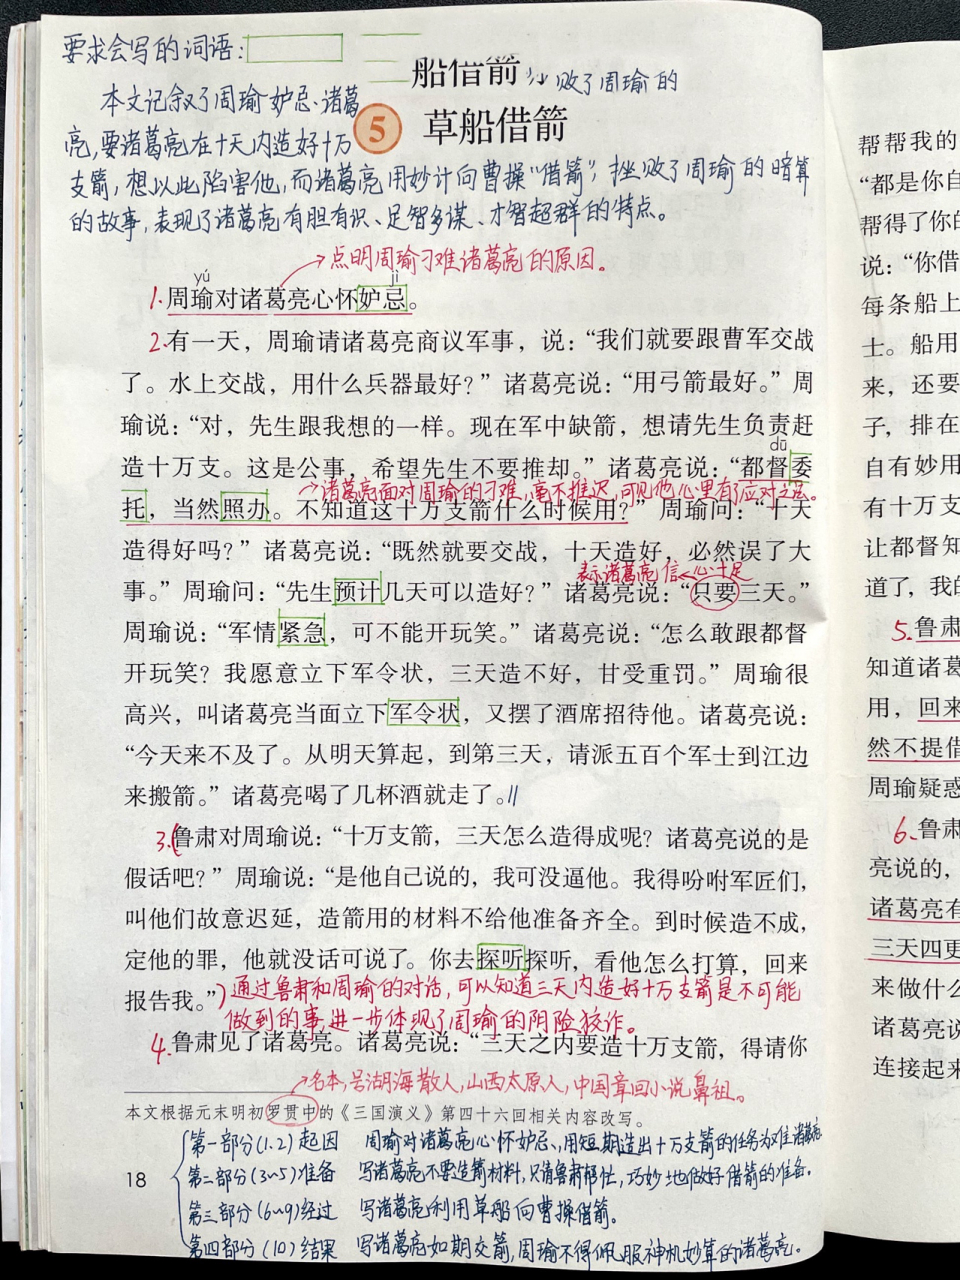 要求会写的词语：
船借箭
败了周瑜的
本文记叙了周瑜妒忌、诸葛
亮，要诸葛亮在十天内造好十万
支箭，想以此陷害他，而诸葛亮用妙计向曹操“借箭”，挫败了周瑜的暗算
的故事，表现了诸葛亮有胆有识、足智多谋、才智超群的特点。
5 草船借箭
点明周瑜刁难诸葛亮的原因。
yú jì
1.周瑜对诸葛亮心怀妒忌。
2.有一天，周瑜请诸葛亮商议军事，说：“我们就要跟曹军交战
了。水上交战，用什么兵器最好？”诸葛亮说：“用弓箭最好。”周
瑜说：“对，先生跟我想的一样。现在军中缺箭，想请先生负责赶
dū
造十万支。这是公事，希望先生不要推却。”诸葛亮说：“都督委
诸葛亮面对周瑜的刁难，毫不推迟，可见他心里有了应对之法。
托，当然照办。不知道这十万支箭什么时候用？”周瑜问：“十天
造得好吗？”诸葛亮说：“既然就要交战，十天造好，必然误了大
表示诸葛亮信心十足
事。”周瑜问：“先生预计几天可以造好？”诸葛亮说：“只要三天。”
周瑜说：“军情紧急，可不能开玩笑。”诸葛亮说：“怎么敢跟都督
开玩笑？我愿意立下军令状，三天造不好，甘受重罚。”周瑜很
高兴，叫诸葛亮当面立下军令状，又摆了酒席招待他。诸葛亮说：
“今天来不及了。从明天算起，到第三天，请派五百个军士到江边
来搬箭。”诸葛亮喝了几杯酒就走了。
3.鲁肃对周瑜说：“十万支箭，三天怎么造得成呢？诸葛亮说的是
假话吧？”周瑜说：“是他自己说的，我可没逼他。我得吩咐军匠们，
叫他们故意迟延，造箭用的材料不给他准备齐全。到时候造不成，
定他的罪，他就没话可说了。你去探听探听，看他怎么打算，回来
报告我。”
通过鲁肃和周瑜的对话，可以知道三天内造好十万支箭是不可能
做到的事，进一步体现了周瑜的阴险狡诈。
4.鲁肃见了诸葛亮。诸葛亮说：“三天之内要造十万支箭，得请你
名本，号湖海散人，山西太原人，中国章回小说鼻祖。
本文根据元末明初罗贯中的《三国演义》第四十六回相关内容改写。
第一部分（1.2）起因 周瑜对诸葛亮心怀妒忌、用短期造出十万支箭的任务为难诸葛亮
第二部分（3~5）准备 写诸葛亮不要造箭材料，只请鲁肃帮忙，巧妙地做好借箭的准备。
18
第三部分（6~9）经过 写诸葛亮利用草船向曹操借箭。
第四部分（10）结果 写诸葛亮如期交箭，周瑜不得佩服神机妙算的诸葛亮。
帮帮我的
“都是你自
帮得了你的
说：“你借
每条船上
士。船用
来，还要
子，排在
自有妙用
有十万支
让都督知
道了，我的
5.鲁肃
知道诸葛
用，回来
然不提借
周瑜疑惑
6.鲁肃
亮说的，
诸葛亮有
三天四更
来做什么
诸葛亮说
连接起来